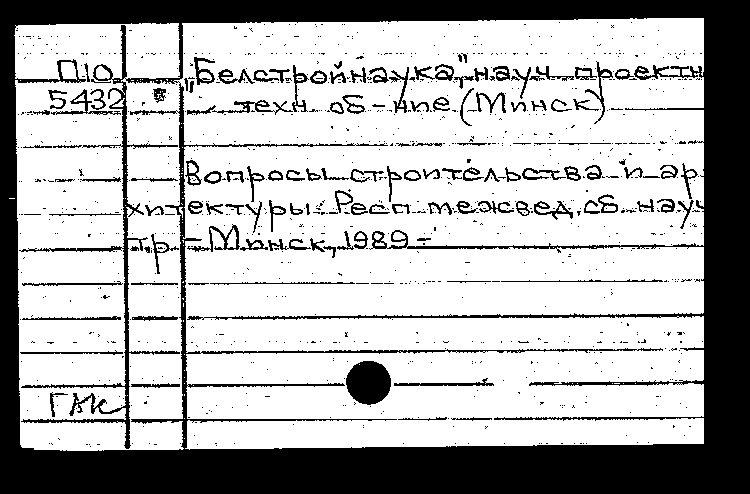 П10 "Белстройнаука", науч. проектн
5432 техн. об-ние (Минск)
Вопросы строительства и ар
хитектуры: Респ. межвед. сб. науч
тр. – Минск, 1989 –
ГАК